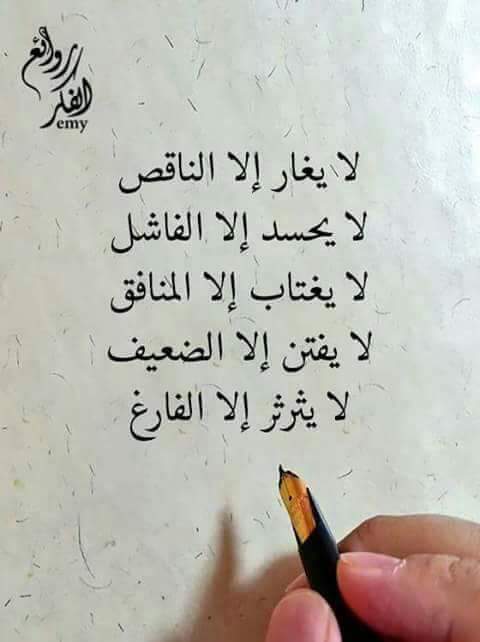 روائع
الفكر
emy
لا يغار إلا الناقص
لا يحسد إلا الفاشل
لا يغتاب إلا المنافق
لا يفتن إلا الضعيف
لا يثرثر إلا الفارغ